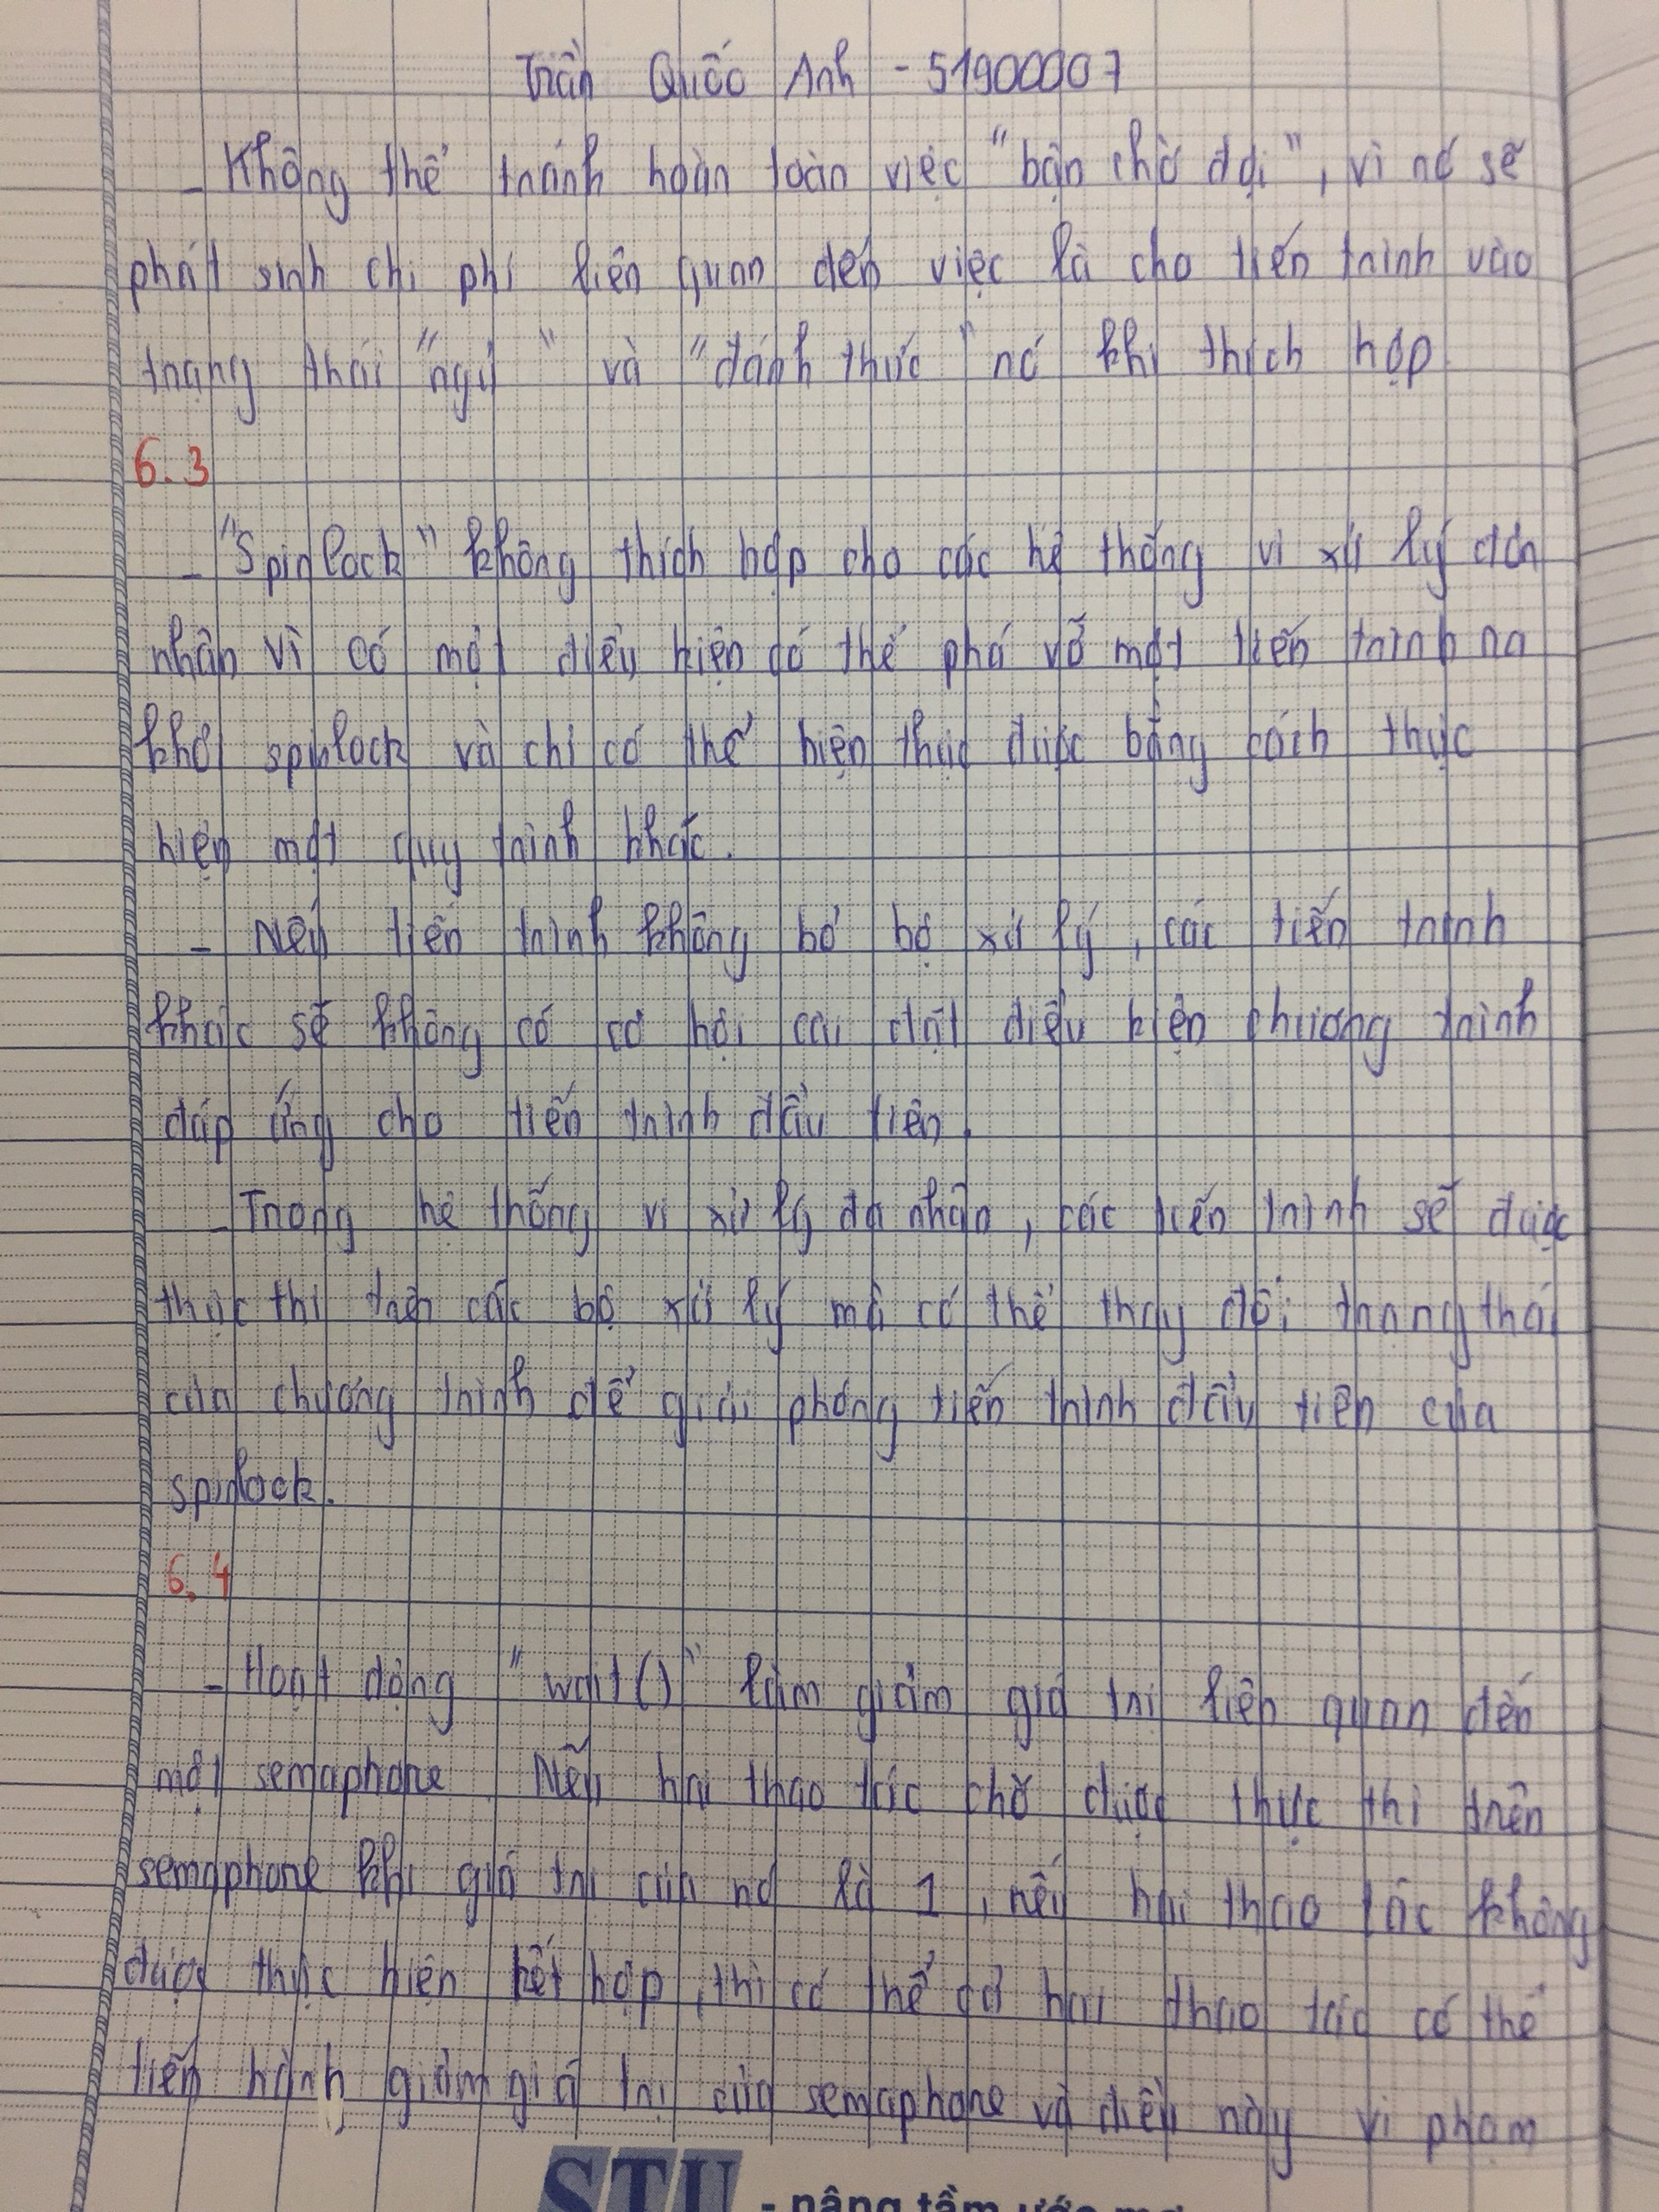 Trần Quốc Anh - 51900007
- Không thể tránh hoàn toàn việc "bận chờ đợi", vì nó sẽ
phát sinh chi phí liên quan đến việc là cho tiến trình vào
trạng thái "ngủ" và "đánh thức" nó khi thích hợp
6.3
- "Spinlock" không thích hợp cho các hệ thống vi xử lý đơn
nhân vì có một điều kiện có thể phá vỡ một tiến trình ra
khỏi spinlock và chỉ có thể hiện thực được bằng cách thực
hiện một quy trình khác.
- Nếu tiến trình không bỏ bộ xử lý, các tiến trình
khác sẽ không có cơ hội cài đặt điều kiện chương trình
đáp ứng cho tiến trình đầu tiên.
- Trong hệ thống vi xử lý đa nhân, các tiến trình sẽ được
thực thi trên các bộ xử lý mà có thể thay đổi trạng thái
của chương trình để giải phóng tiến trình đầu tiên của
spinlock.
6.4
- Hoạt động "wait()" làm giảm giá trị liên quan đến
một semaphore. Nếu hai thao tác chờ được thực thi trên
semaphore khi giá trị của nó là 1, nếu hai thao tác không
được thực hiện kết hợp, thì có thể cả hai thao tác có thể
tiến hành giảm giá trị của semaphore và điều này vi phạm
STU - nâng tầm ước mơ